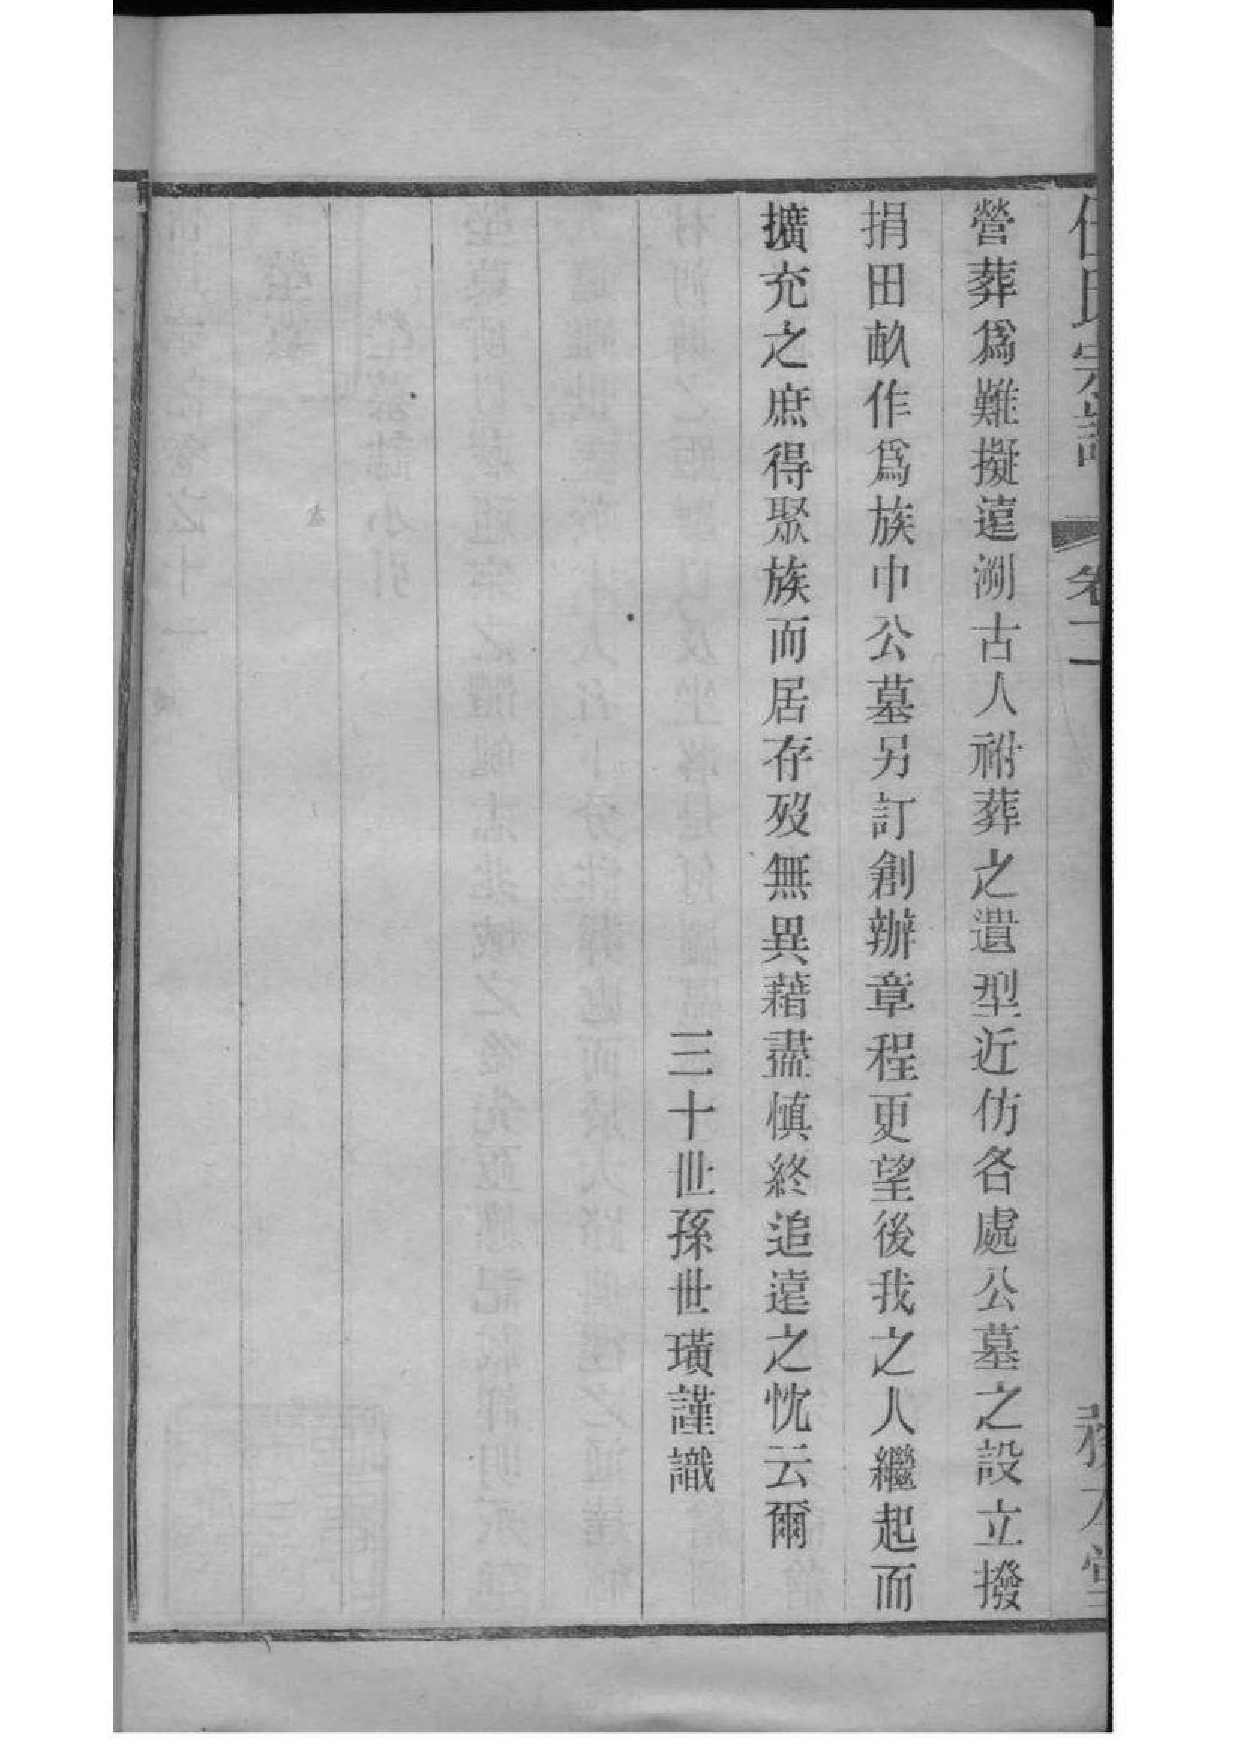 任氏宗譜 卷十一
營葬爲難擬遠溯古人祔葬之遺型近仿各處公墓之設立撥
捐田畝作爲族中公墓另訂創辦章程更望後我之人繼起而
擴充之庶得聚族而居存歿無異藉盡慎終追遠之忱云爾
三十世孫世璜謹識